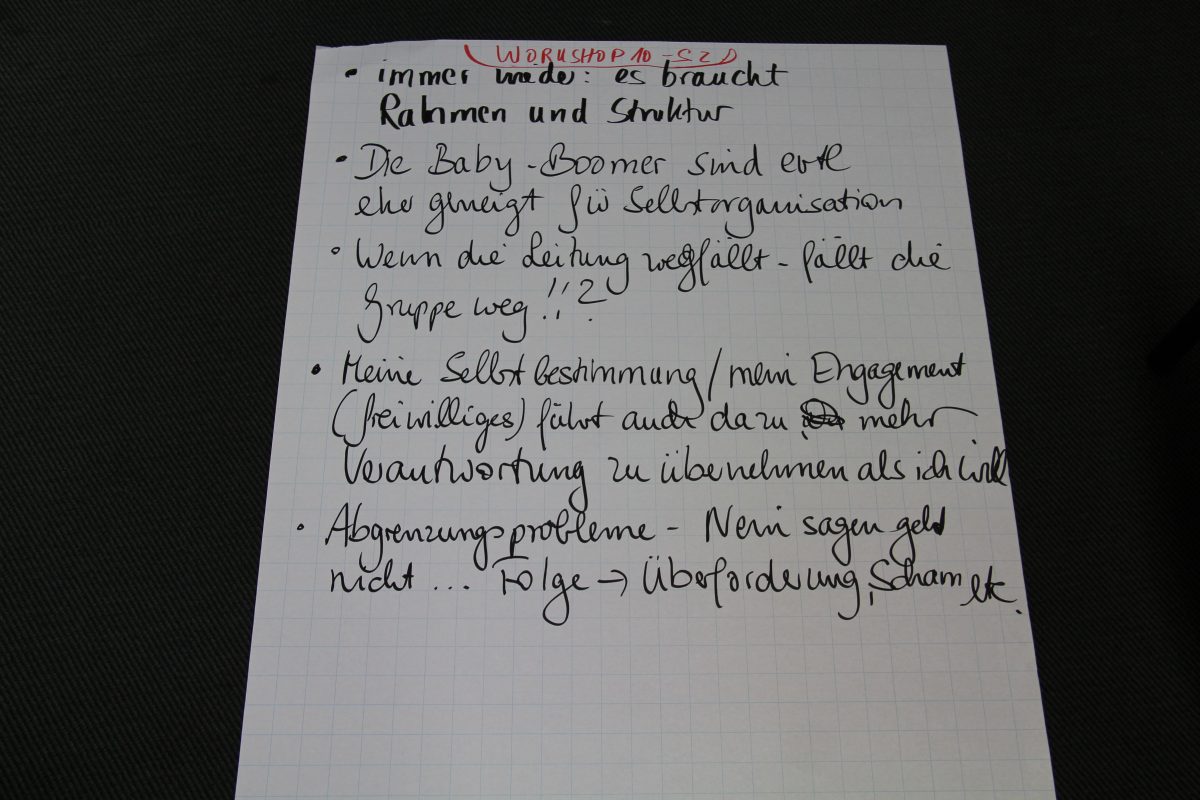 WORKSHOP 10 - S2
• immer wieder: es braucht
Rahmen und Struktur
• Die Baby-Boomer sind evtl
eher geneigt für Selbstorganisation
• Wenn die Leitung wegfällt - fällt die
Gruppe weg!!?
• Meine Selbstbestimmung/mein Engagement
(freiwilliges) führt auch dazu mehr
Verantwortung zu übernehmen als ich will
• Abgrenzungsprobleme - Nein sagen geht
nicht... Folge → Überforderung, Scham etc.